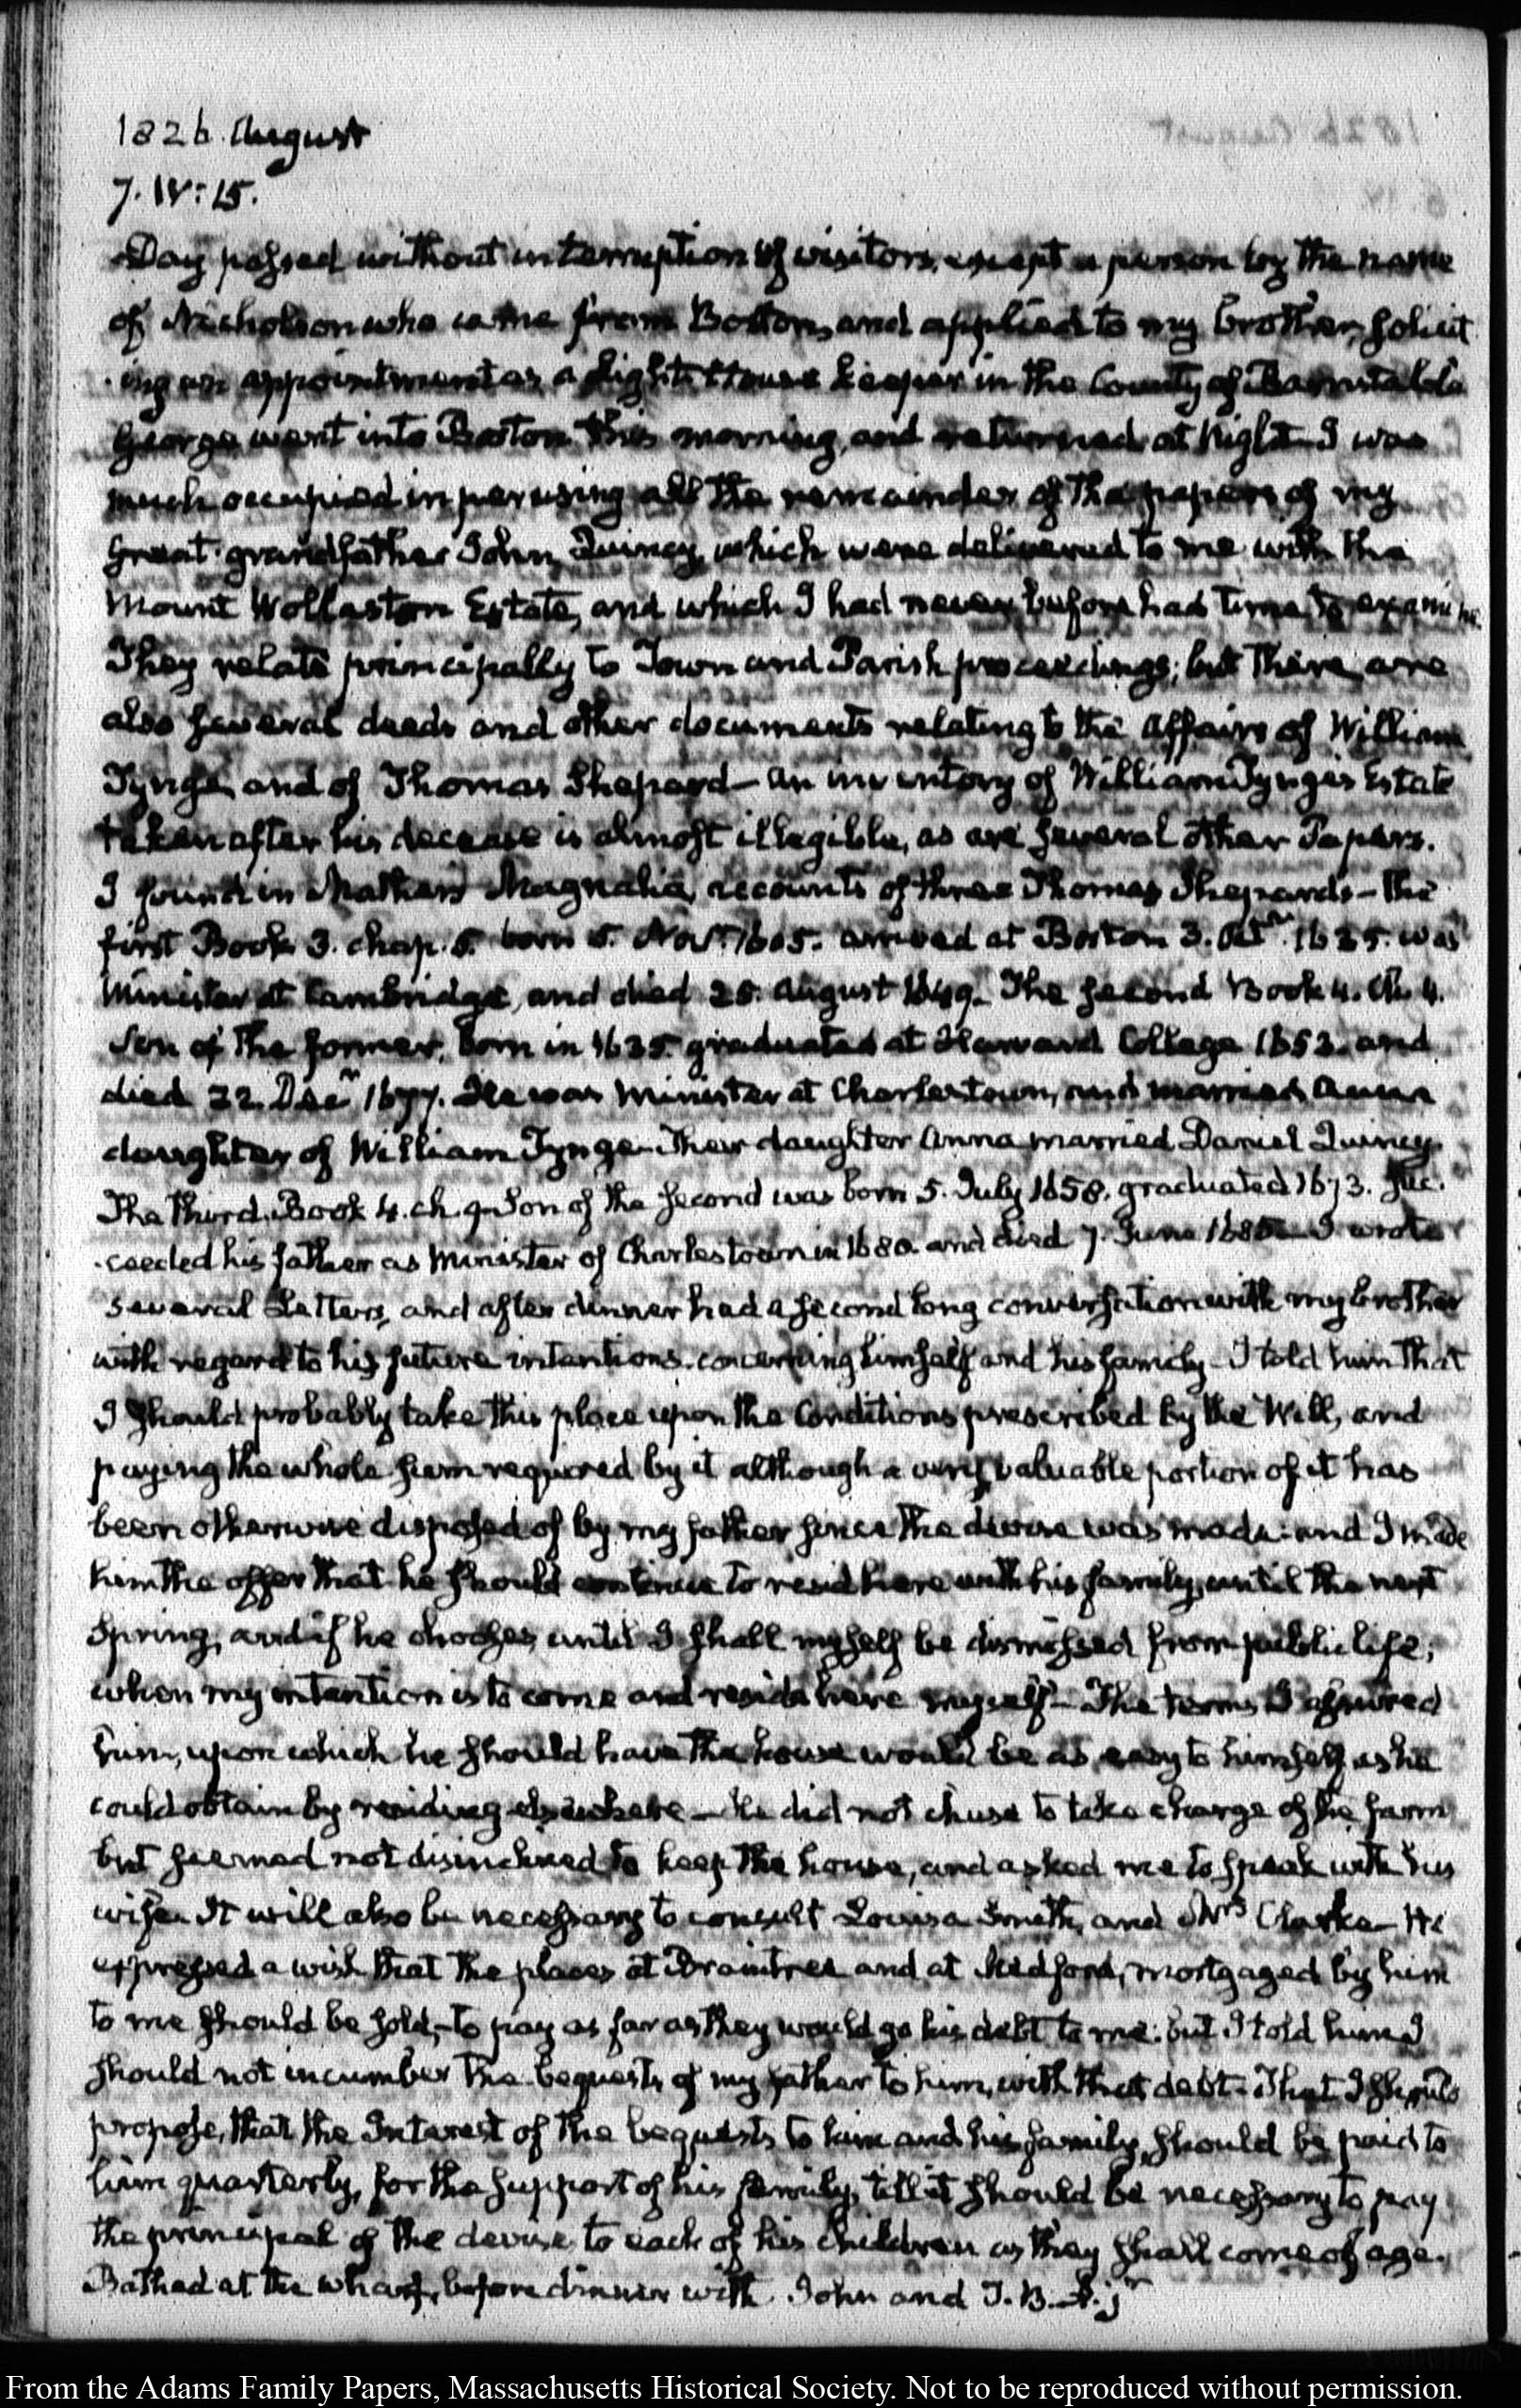 1826. August
7. IV: 15.
Day passed without interruption of visitors, except a person by the name
of Nicholson who came from Boston, and applied to my brother, solicit
ing an appointment as a Light House keeper in the County of Barnstable
George went into Boston this morning, and returned at Night. I was
much occupied in perusing all the remainder of the papers of my
great grandfather John Quincy, which were delivered to me with the
Mount Wollaston Estate, and which I had never before had time to examine.
They relate principally to Town and Parish proceedings; but there are
also several deeds and other documents relating to the affairs of William
Tynge, and of Thomas Shepard — an inventory of William Tynge's Estate
taken after his decease is almost illegible, as are several other Papers.
I found in Mather's Magnalia, accounts of three Thomas Shepards — the
first Book 3. chap. 5. born 5. Novr. 1605. arrived at Boston 3. Octr. 1635. was
Minister at Cambridge, and died 25. August 1649. The second Book 4. Ch. 4.
Son of the former, born in 1635. graduated at Harvard College 1653. and
died 22. Decr 1677. He was Minister at Charlestown, and married Anna
daughter of William Tynge. Their daughter Anna married Daniel Quincy.
The third. Book 4. ch. 9. Son of the second was born 5. July 1658. graduated 1673. Suc.
ceeded his father as Minister of Charlestown in 1680. and died 7. June 1685. I wrote
several Letters, and after dinner had a second long conversation with my brother
with regard to his future intentions. concerning himself and his family — I told him that
I should probably take this place upon the Conditions prescribed by the Will, and
paying the whole sum required by it although a very valuable portion of it has
been otherwise disposed of by my father since the devise was made: and I made
him the offer that he should continue to resid here with his family, until the next
Spring, and if he chooses, until I shall myself be dismissed from public life;
when my intention is to come and reside here myself — The terms I assured
him, upon which he should have the house would be as easy to himself as he
could obtain by residing elsewhere — He did not chuse to take charge of the farm
but seemed not disinclined to keep the house, and asked me to speak with his
wife. It will also be necessary to consult Louisa Smith, and Mrs Clarke — He
expressed a wish that the places at Braintree and at Medford, mortgaged by him
to me should be sold, — to pay as far as they would go his debt to me: but I told him I
should not incumber the bequests of my father to him, with that debt. That I should
propose, that the Interest of the bequests to him and his family, should be paid to
him quarterly, for the support of his family, till it should be necessary to pay
the principal of the devise to each of his children as they shall come of age.
Bathed at the wharf, before dinner with John and T. B. A. jr
From the Adams Family Papers, Massachusetts Historical Society. Not to be reproduced without permission.